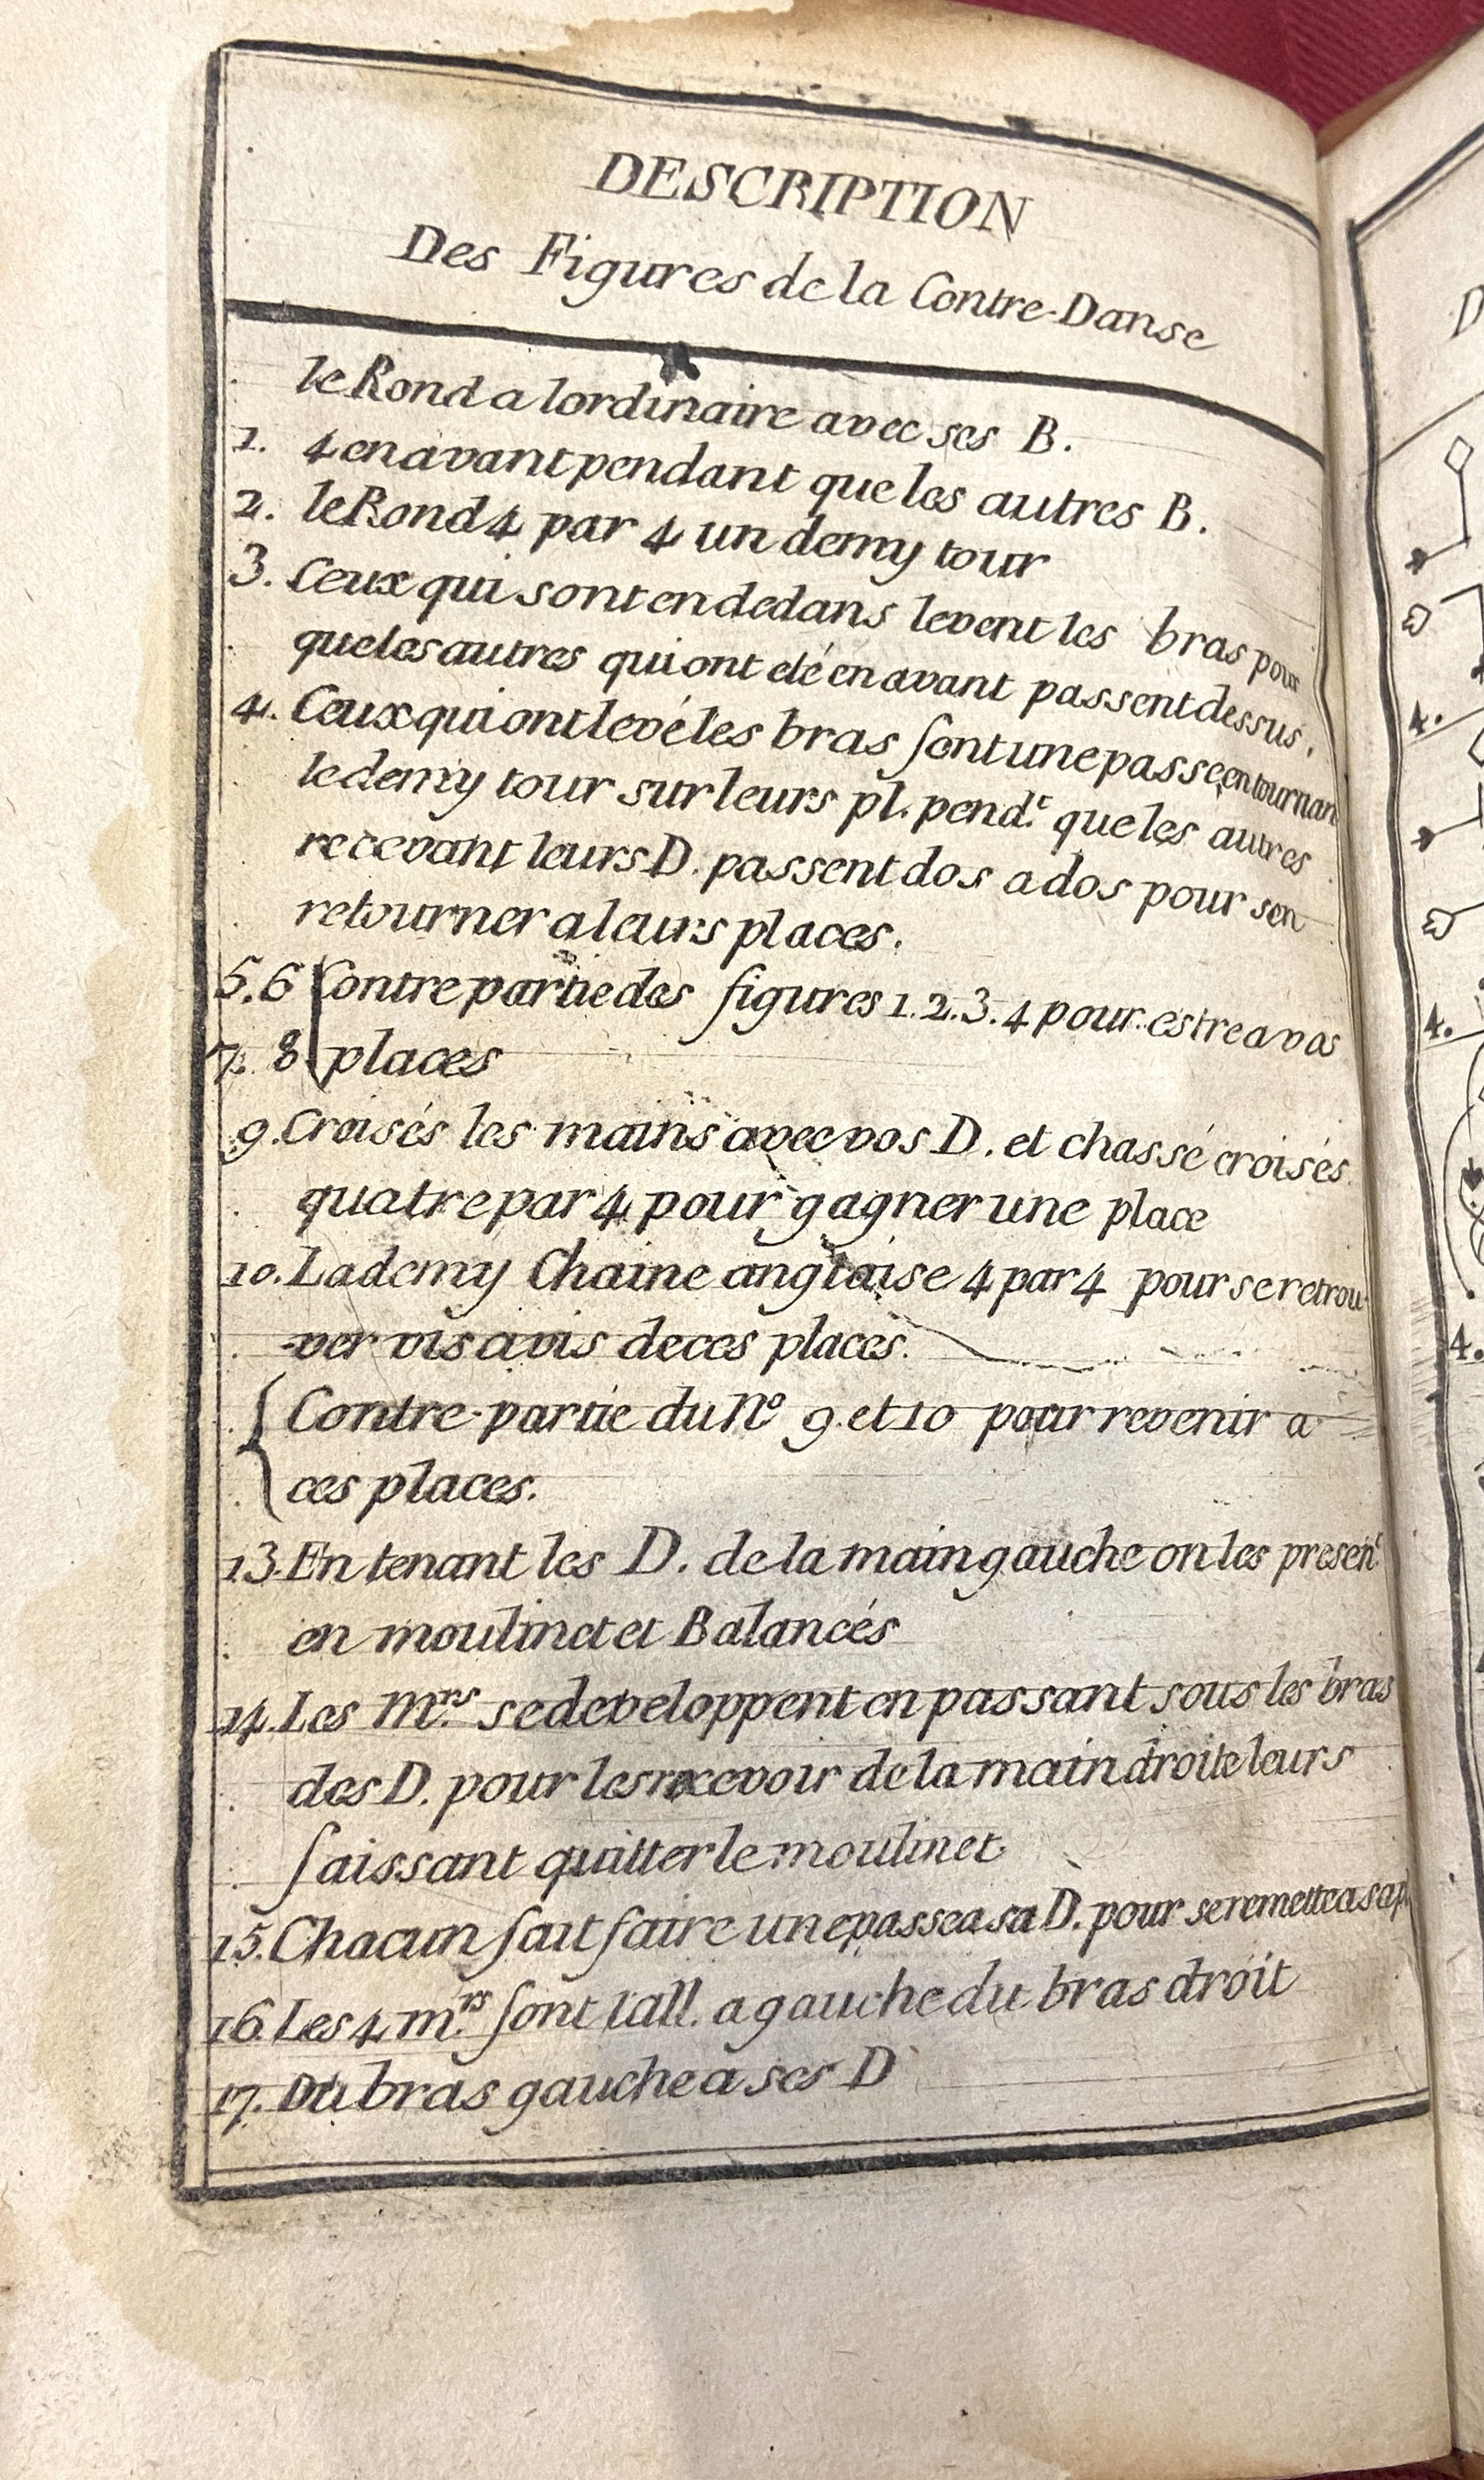 DESCRIPTION
Des Figures de la Contre-Danse
le Rond a lordinaire avec ses B.
1. 4 en avant pendant que les autres B.
2. le Rond 4 par 4 un demy tour
3. Ceux qui sont en dedans levent les bras pour
que les autres qui ont eté en avant passent dessus.
4. Ceux qui ont levé les bras font une passe en tournan
le demy tour sur leurs pl. pend.t que les autres
recevant leurs D. passent dos a dos pour sen
retourner a leurs places.
5. 6 Contre partie des figures 1. 2. 3. 4 pour estre a vos
7. 8 places
9. Croisés les mains avec vos D. et chassé croisés
quatre par 4 pour gagner une place
10. La demy Chaine anglaise 4 par 4 pour se retrou
-ver vis a vis de ces places.
Contre-partie du No 9. et 10 pour revenir a
ces places.
13. En tenant les D. de la main gauche on les presen.t
en moulinet et Balancés
14. Les M.rs se developpent en passant sous les bras
des D. pour les recevoir de la main droite leurs
faissant quitter le moulinet
15. Chacun fait faire une passe a sa D. pour se remettre a sa pl
16. Les 4 m.rs font l'all. a gauche du bras droit
17. Du bras gauche a ses D
D
4.
4.
4.